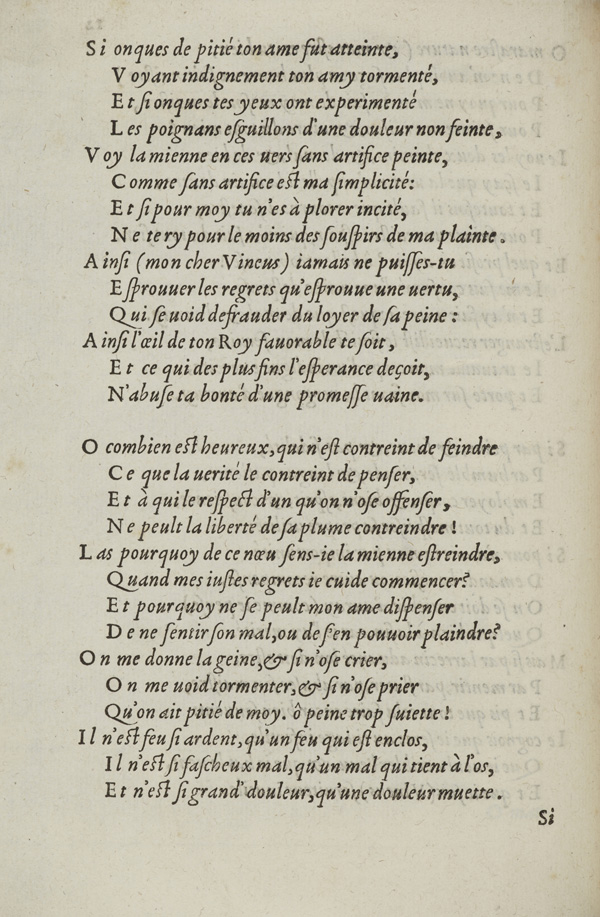 Si onques de pitié ton ame fut atteinte,
Voyant indignement ton amy tormenté,
Et ſi onques tes yeux ont experimenté
Les poignans eſguillons d'une douleur non feinte,
Voy la mienne en ces uers ſans artifice peinte,
Comme ſans artifice eſt ma ſimplicité:
Et ſi pour moy tu n'es à plorer incité,
Ne te ry pour le moins des ſouſpirs de ma plainte.
Ainſi (mon cher Vineus) iamais ne puiſſes-tu
Eſprouuer les regrets qu'eſprouue une uertu,
Qui ſe uoid defrauder du loyer de ſa peine:
Ainſi l'œil de ton Roy fauorable te ſoit,
Et ce qui des plus fins l'eſperance deçoit,
N'abuſe ta bonté d'une promeſſe uaine.
O combien eſt heureux, qui n'eſt contreint de feindre
Ce que la uerité le contreint de penſer,
Et à qui le reſpect d'un qu'on n'oſe offenſer,
Ne peult la liberté de ſa plume contreindre!
Las pourquoy de ce nœu ſens-ie la mienne eſtreindre,
Quand mes iuſtes regrets ie cuide commencer?
Et pourquoy ne ſe peult mon ame diſpenſer
De ne ſentir ſon mal, ou de s'en pouuoir plaindre?
On me donne la geine, & ſi n'oſe crier,
On me uoid tormenter, & ſi n'oſe prier
Qu'on ait pitié de moy. ô peine trop ſuiette!
Il n'eſt feu ſi ardent, qu'un feu qui eſt enclos,
Il n'eſt ſi faſcheux mal, qu'un mal qui tient à l'os,
Et n'eſt ſi grand' douleur, qu'une douleur muette.
Si